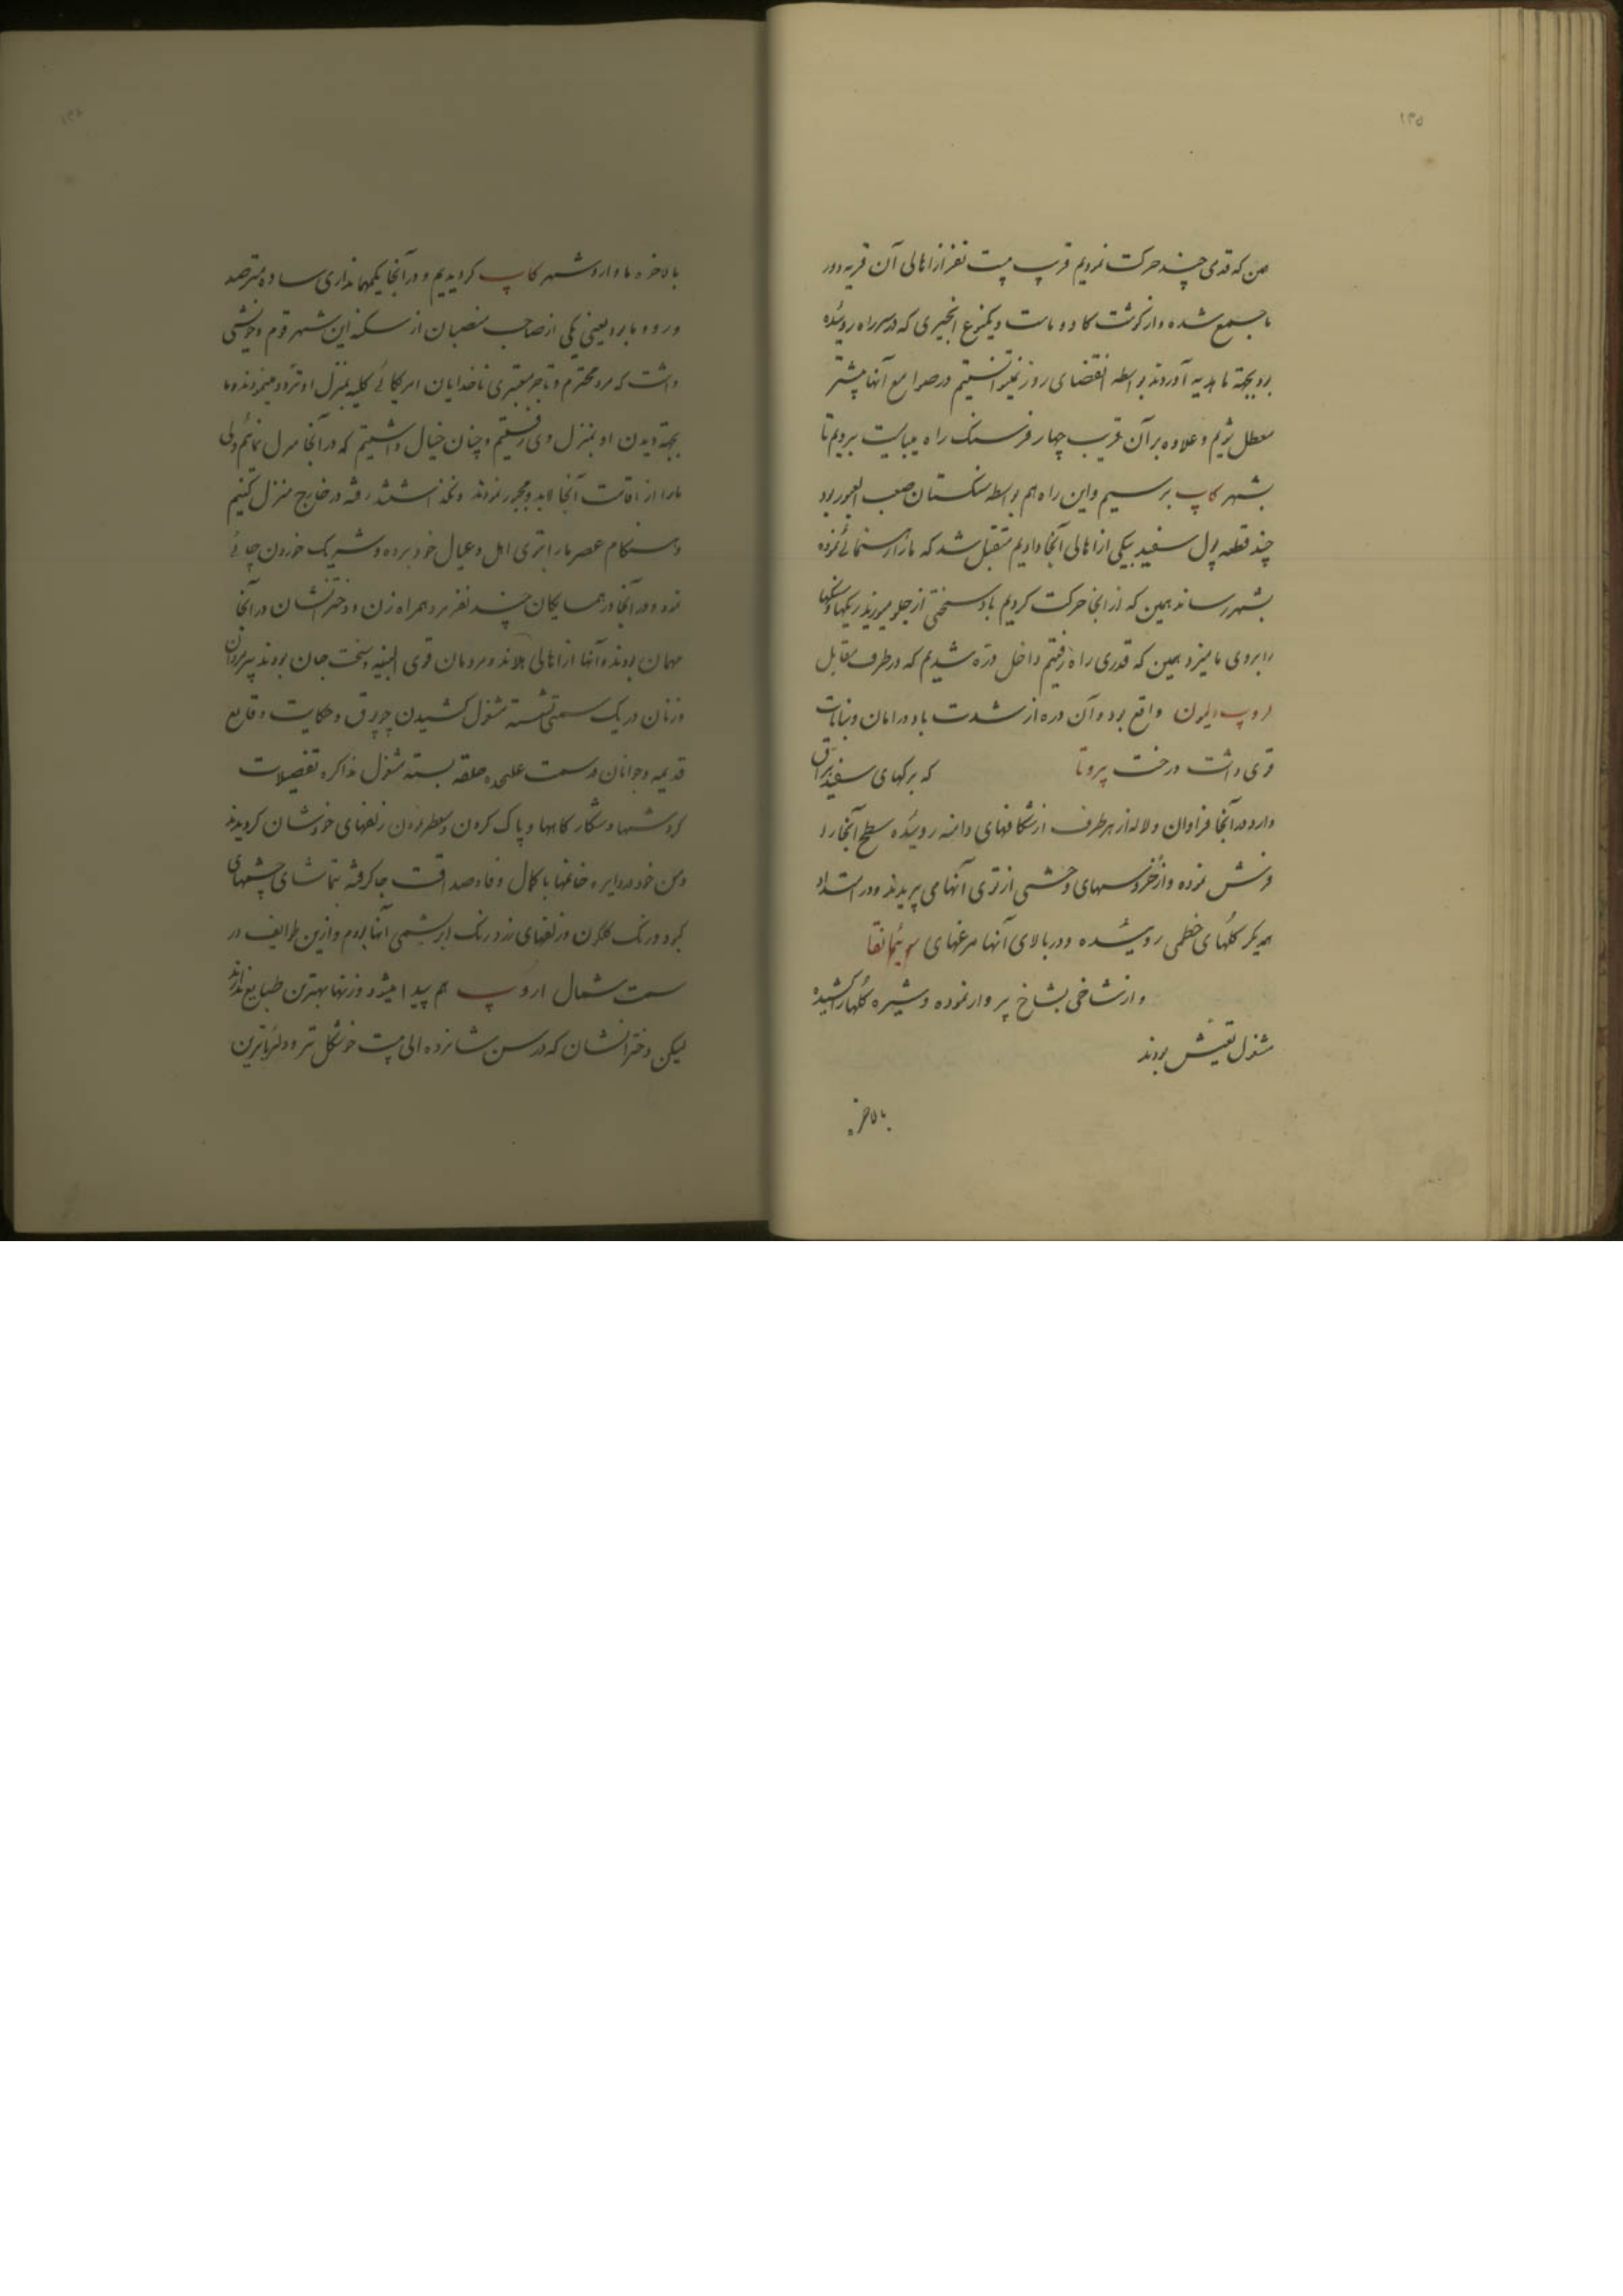 ۱۳۵
همین که قدمی چند حرکت نمودیم قریب بیست نفر از اهالی آن قریه دور
ما جمع شده و از گوشت گاو و ماست و یکنوع انجیری که در سر راه روئیده
بود بجهة ما هدیه آوردند بواسطه انقضای روز نمیتوانستیم در صوامع آنها بیشتر
معطل شویم و علاوه بر آن قریب چهار فرسنک راه میبایست برویم تا
بشهر کاپ برسیم و این راه هم بواسطه سنکستان صعب العبور بود
چند قطعه پول سفید بیکی از اهالی آنجا دادیم متقبل شد که ما را رهنمائی نموده
بشهر رساند همین که از آنجا حرکت کردیم باد سختی از جلو میوزید ریکها و سنکها
را بروی ما میزد همین که قدری راه رفتیم داخل درّه شدیم که در طرف مقابل
واقع بود و آن دره از شدت باد در امان و نباتات
قوی داشت درخت پروتا که برکهای سفید براق
دارد در آنجا فراوان و لاله از هر طرف از شکافهای دامنه روئیده سطح آنجا را
فرش نموده و از خروسهای وحشی از توی آنها می پریدند و در امتداد
همدیکر کلهای خطمی روئیده و در بالای آنها مرغهای
و از شاخی بشاخ پرواز نموده و شیره کلها را کشیده
مشغول تعیش بودند
بالاخره
بالاخره ما وارد شهر کاپ کردیدیم و در آنجا یکمهمانداری ساده مترصد
ورود ما بود یعنی یکی از صاحب منصبان از سکنه این شهر قوم و خویشی
داشت که مرد محترم و تاجر معتبری ناخدایان امریکائی کلیه بمنزل او تردد مینمودند ما
بجهة دیدن او بمنزل وی رفتیم و چنان خیال داشتیم که در آنجا منزل نمائیم ولی
ما را از اقامت آنجا لابد و مجبور نمودند و نکذاشتند رفته در خارج منزل کنیم
و هنکام عصر ما را بنزد اهل و عیال خود برده و شریک خوردن چائی
نمود و در آنجا در همسایکان چند نفر مرد همراه زن و دخترانشان در آنجا
مهمان بودند و آنها از اهالی هلاند و مردمان قوی البنیه و سخت جان بودند پیرمردان
و زنان در یک سمتی نشسته مشغول کشیدن چوپوق و حکایت وقایع
قدیمه و جوانان در سمت علیحده حلقه بسته مشغول مذاکره تفصیلات
کردشها و شکارکاهها و پاک کردن و معطر نمودن زلفهای خودشان کردیدند
و من خود در دایره خانمها با کمال وفا و صداقت جا کرفته بتماشای چشمهای
کبود و رنک کلکون و زلفهای زرد رنک ابریشمی آنها بودم و ازین طوایف در
سمت شمال اروپ هم پیدا میشود و زنها بهترین طبایع ندارند
لیکن دخترانشان که در سن شانزده الی بیست خوشکل تر و دلرباترین